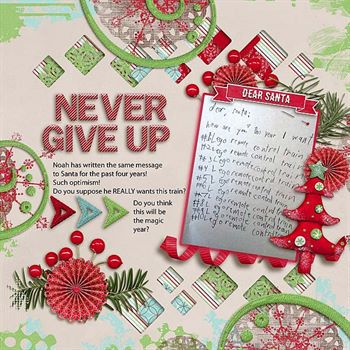 NEVER
GIVE UP
Noah has written the same message
to Santa for the past four years!
Such optimism!
Do you suppose he REALLY wants this train?
Do you think
this will be
the magic
year?
DEAR SANTA
dear, santa,
How are you? this year I want
#1 Lego remote control trains
#2 Lego remote control trains
#3 Lego remote control trains
#4 Lego remote control trains
#5 Lego remote control trains
#6 Lego remote control trains
#7 Lego remote control trains
#8 Lego remote control trains